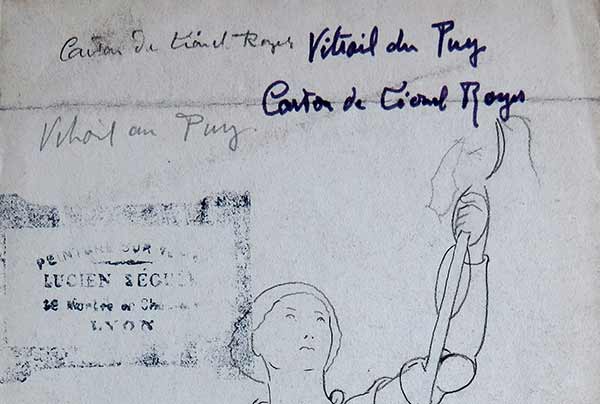 Carton de Lionel Royer
Vitrail du Puy
Carton de Lionel Royer
Vitrail du Puy
PEINTURE SUR
LUCIEN
Montée de
LYON